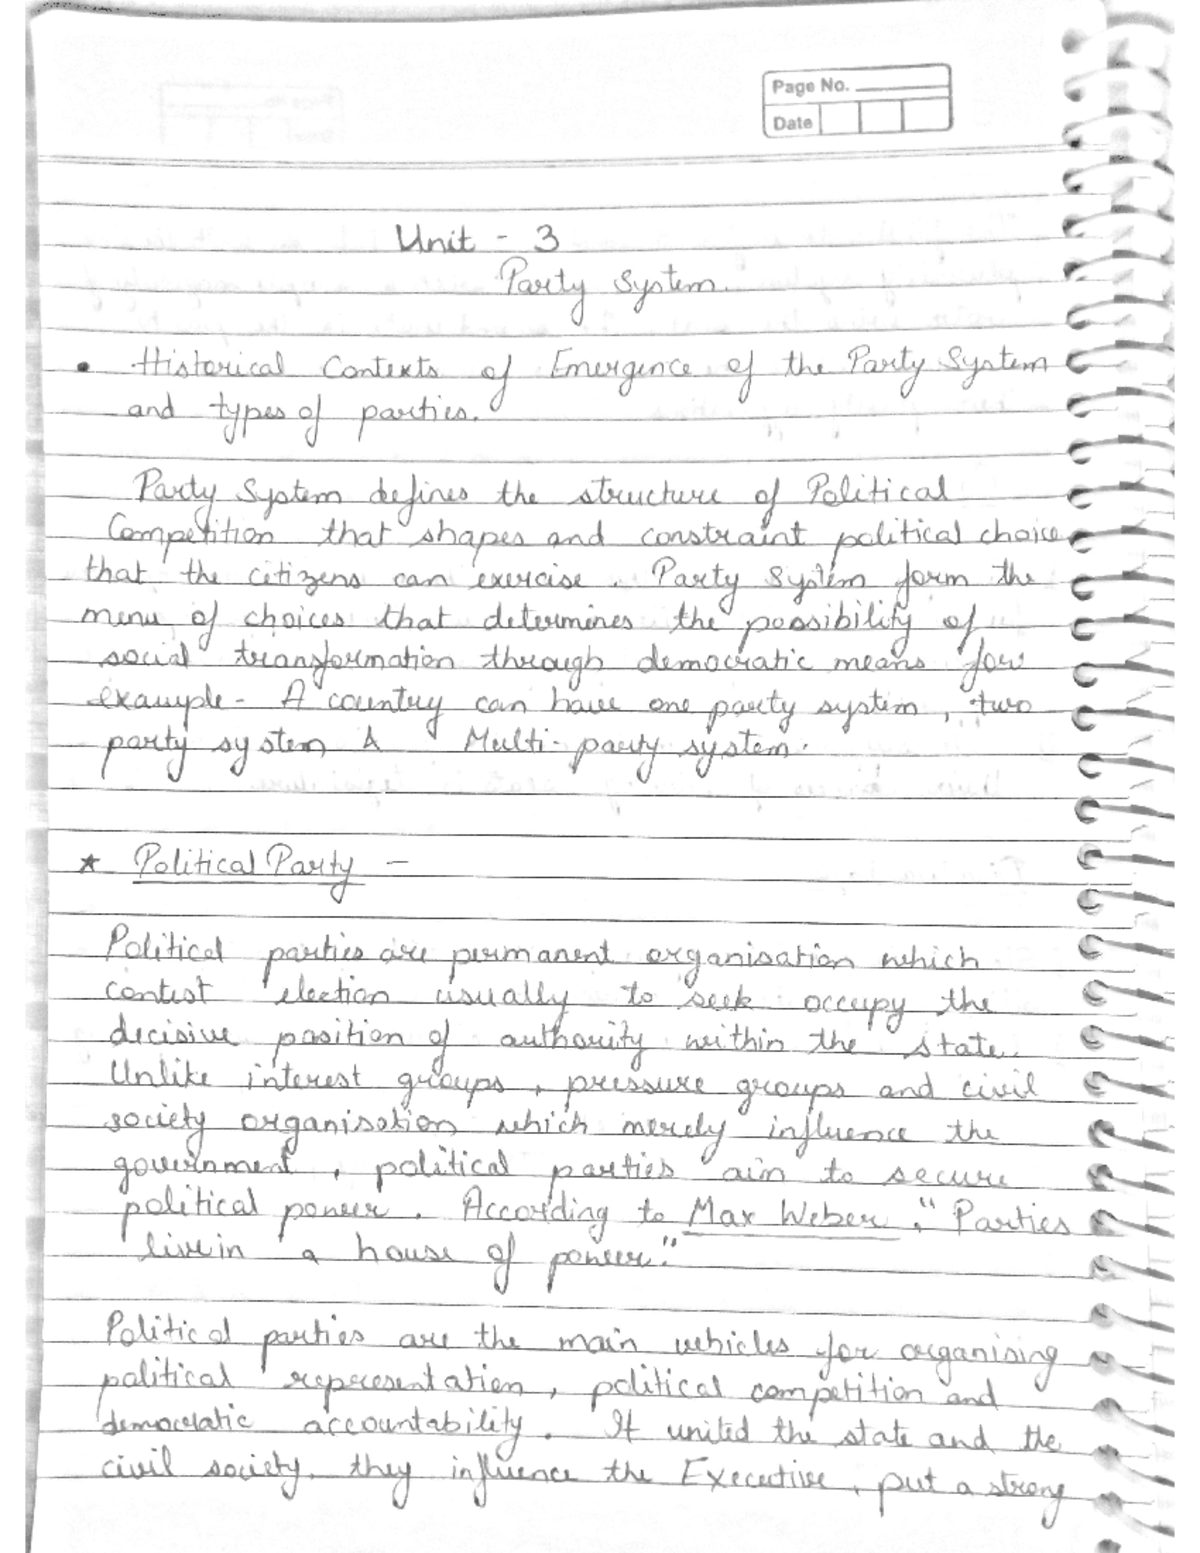 Page No.
Date
Unit - 3
Party System.
• Historical Contexts of Emergence of the Party System
and types of parties.
Party System defines the structure of Political
Competition that shapes and constraint political choice
that the citizens can exercise. Party System form the
menu of choices that determines the possibility of
social transformation through democratic means for
example - A country can have one party system, two
party system & Multi-party system.
★ Political Party -
Political parties are permanent organisation which
contest election usually to seek occupy the
decisive position of authority within the state.
Unlike interest groups, pressure groups and civil
society organisation which merely influence the
government, political parties aim to secure
political power. According to Max Weber, "Parties
live in a house of power."
Political parties are the main vehicles for organising
political representation, political competition and
democratic accountability. It united the state and the
civil society. they influence the Executive, put a strong